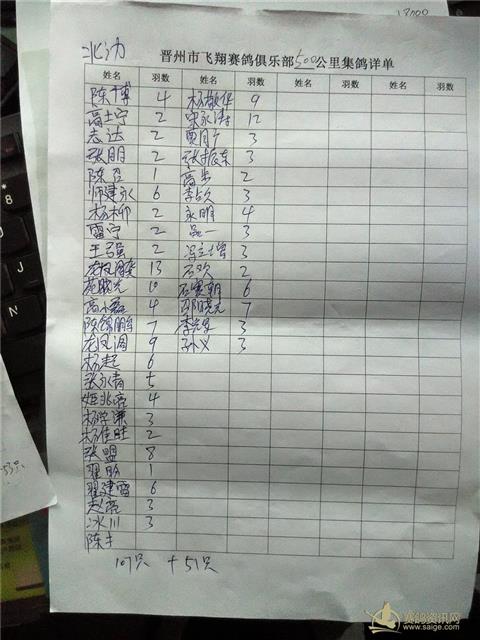 北沙
晋州市飞翔赛鸽俱乐部500公里集鸽详单
姓名 羽数 姓名 羽数 姓名 羽数 姓名 羽数
陈博 4 杨敬华 9
高士宁 2 宋永涛 12
志达 2 贾月 3
张朋 2 张振东 3
陈召 1 高步 2
师建永 6 李占久 3
杨柳 2 永明 4
雷宁 2 品一 3
王子强 2 3
龙凤腾 13 石欢 2
苑晓光 10 石寒朝 6
高小磊 4 邵晓光 7
陈鹤鹏 7 李光 3
龙凤阁 9 孙义 3
杨起 6
张永青 5
姬兆亮 4
杨学谦 3
杨佳旺 2
张盟 8
翟盼 1
翟建雷 6
赵亮 3
冰川 3
陈丰
107只 +51只
8
赛鸽资讯网
www.saige.com